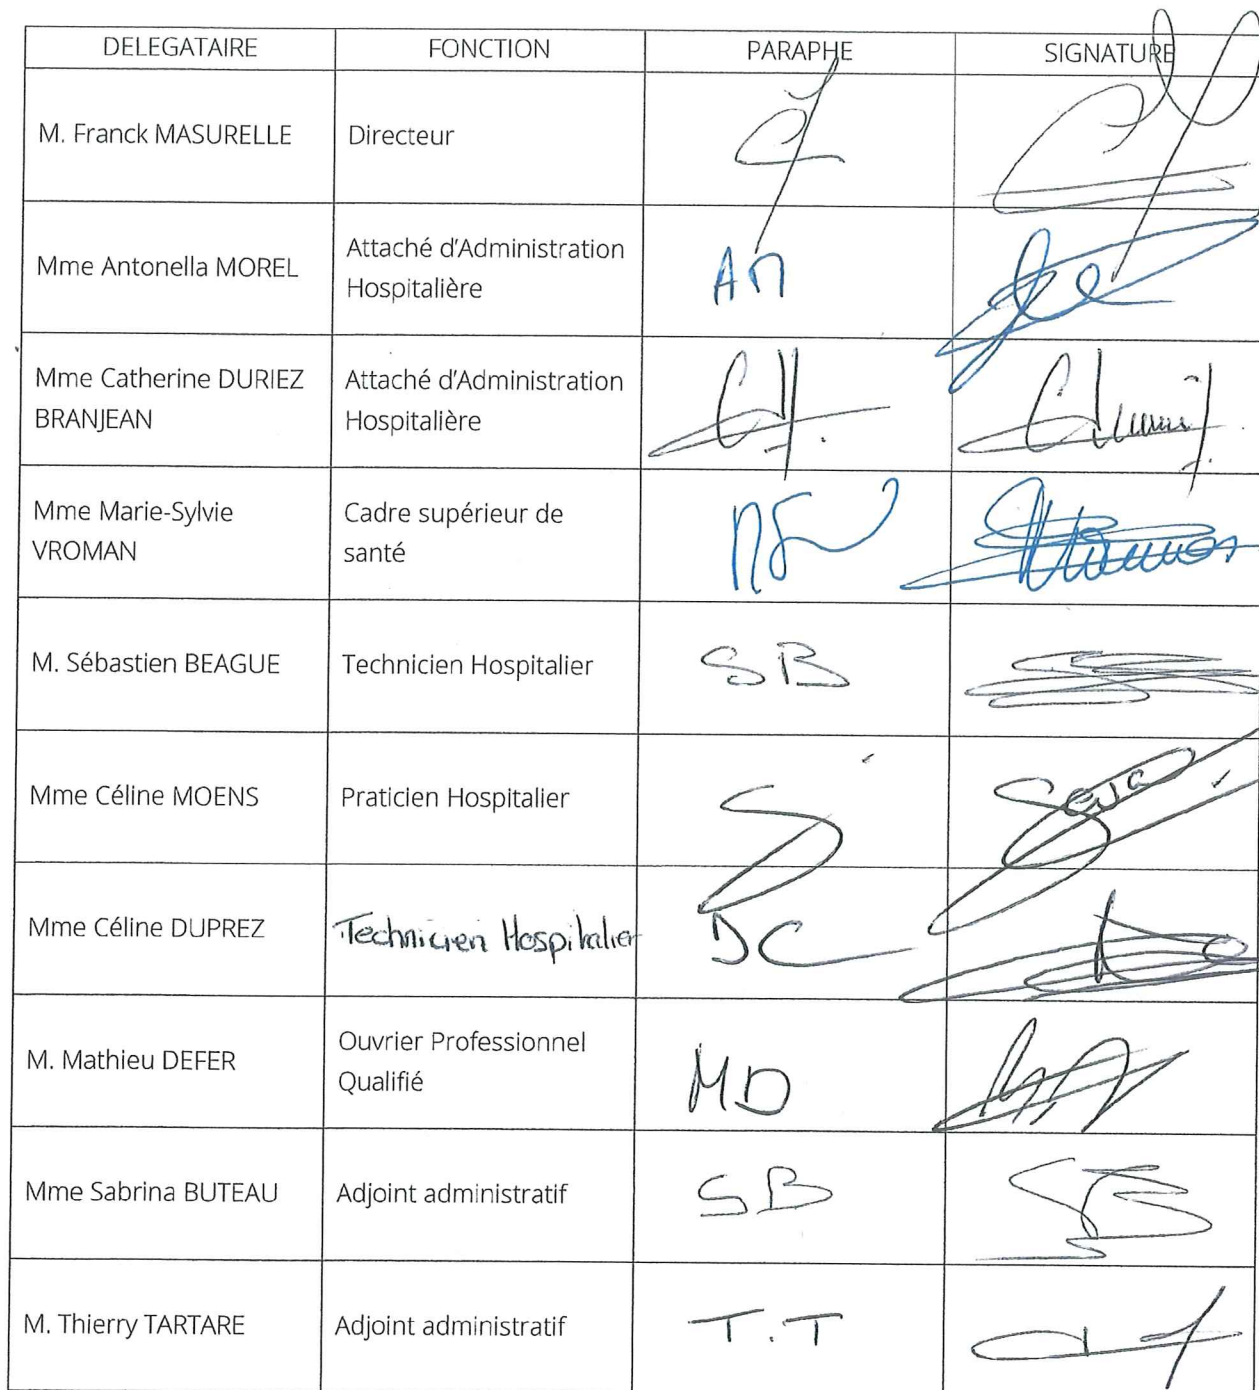 DELEGATAIRE FONCTION PARAPHE SIGNATURE
M. Franck MASURELLE Directeur
Mme Antonella MOREL Attaché d'Administration Hospitalière AM
Mme Catherine DURIEZ BRANJEAN Attaché d'Administration Hospitalière
Mme Marie-Sylvie VROMAN Cadre supérieur de santé
M. Sébastien BEAGUE Technicien Hospitalier SB
Mme Céline MOENS Praticien Hospitalier
Mme Céline DUPREZ Technicien Hospitalier DC
M. Mathieu DEFER Ouvrier Professionnel Qualifié MD
Mme Sabrina BUTEAU Adjoint administratif SB
M. Thierry TARTARE Adjoint administratif T.T